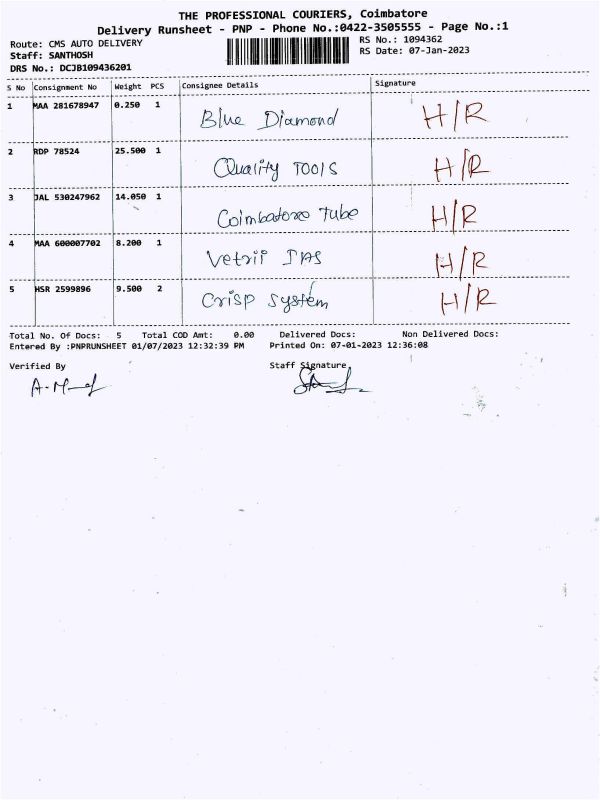 THE PROFESSIONAL COURIERS, Coimbatore
Delivery Runsheet - PNP - Phone No.:0422-3505555 - Page No.:1
Route: CMS AUTO DELIVERY RS No.: 1094362
Staff: SANTHOSH RS Date: 07-Jan-2023
DRS No.: DCJB109436201
S No Consignment No Weight PCS Consignee Details Signature
1 MAA 281678947 0.250 1 Blue Diamond H/R
2 RDP 78524 25.500 1 Quality Tools H/R
3 JAL 530247962 14.050 1 Coimbatore Tube H/R
4 MAA 600007702 8.200 1 Vetrii IAS H/R
5 HSR 2599896 9.500 2 Crisp System H/R
Total No. Of Docs: 5 Total COD Amt: 0.00 Delivered Docs: Non Delivered Docs:
Entered By :PNPRUNSHEET 01/07/2023 12:32:39 PM Printed On: 07-01-2023 12:36:08
Verified By Staff Signature